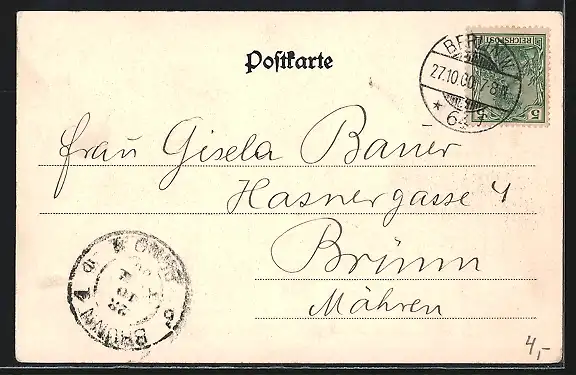 Postkarte
BERLIN W.
27.10.00. 7-8N.
* 64
REICHSPOST
5
Frau Gisela Bauer
Hasnergasse 4
Brünn
Mähren
BRÜNN
BRNO
28
10
4,-